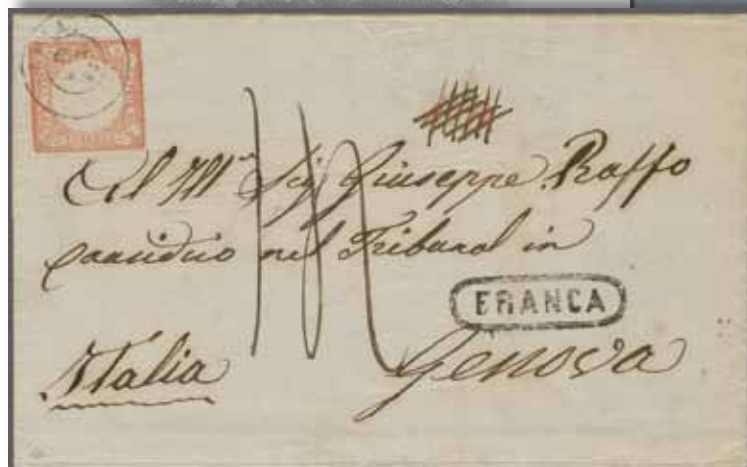 Al Ill.mo Sig Giuseppe Raffo
Causidico nel Tribunal in
FRANCA
Genova
Italia